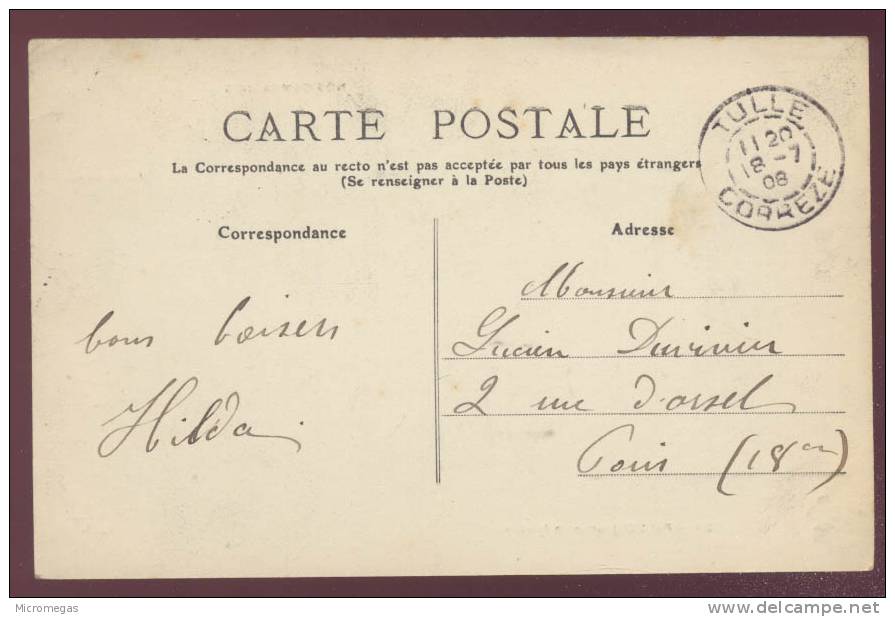 CARTE POSTALE
La Correspondance au recto n'est pas acceptée par tous les pays étrangers
(Se renseigner à la Poste)
TULLE
11 20
18 -7
08
CORREZE
Correspondance
bons baisers
Hilda
Adresse
Monsieur
Lucien
2 rue d'orsel
Paris (18em)
Micromegas
www.delcampe.net